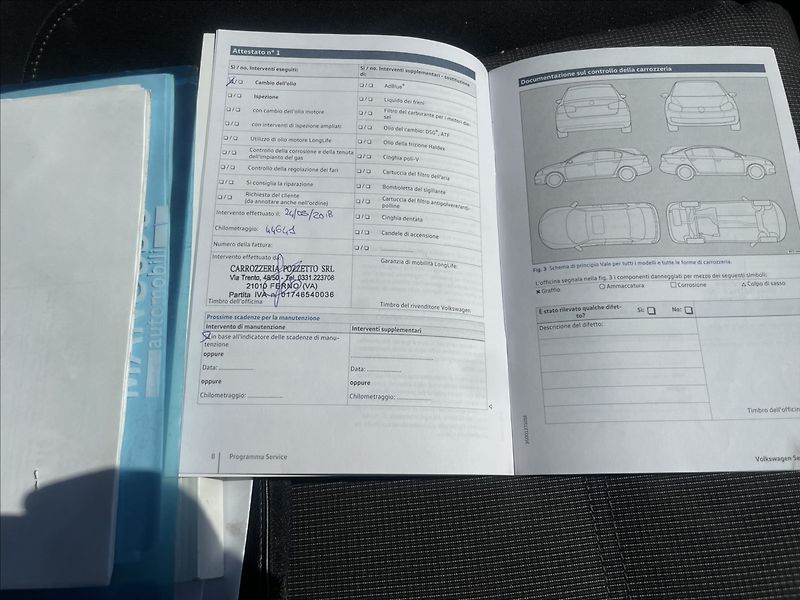 Attestato n° 1
Sì / no. Interventi eseguiti:
Cambio dell'olio
Ispezione
con cambio dell'olio motore
con interventi di ispezione ampliati
Utilizzo di olio motore LongLife
Controllo della corrosione e della tenuta
dell'impianto del gas
Controllo della regolazione dei fari
Si consiglia la riparazione
Richiesta del cliente
(da annotare anche nell'ordine)
Intervento effettuato il: 24/08/2018
Chilometraggio: 44641
Numero della fattura:
Intervento effettuato da
CARROZZERIA POZZETTO SRL
Via Trento, 48/50 - Tel. 0331.223708
21010 FERNO (VA)
Partita IVA n. 01746540036
Timbro dell'officina
Sì / no. Interventi supplementari - sostituzione
di:
AdBlue®
Liquido dei freni
Filtro del carburante per i motori die-
sel
Olio del cambio: DSG®, ATF
Olio della frizione Haldex
Cinghia poli-V
Cartuccia del filtro dell'aria
Bomboletta del sigillante
Cartuccia del filtro antipolvere/anti-
polline
Cinghia dentata
Candele di accensione
Garanzia di mobilità LongLife:
Timbro del rivenditore Volkswagen
Prossime scadenze per la manutenzione
Intervento di manutenzione
In base all'indicatore delle scadenze di manu-
tenzione
oppure
Data:
oppure
Chilometraggio:
Interventi supplementari
Data:
oppure
Chilometraggio:
8 Programma Service
Documentazione sul controllo della carrozzeria
Fig. 3 Schema di principio Vale per tutti i modelli e tutte le forme di carrozzeria.
L'officina segnala nella fig. 3 i componenti danneggiati per mezzo dei seguenti simboli:
Graffio Ammaccatura Corrosione Colpo di sasso
È stato rilevato qualche difet-
to? Sì: No:
Descrizione del difetto:
Timbro dell'officin
Volkswagen Se
automobili